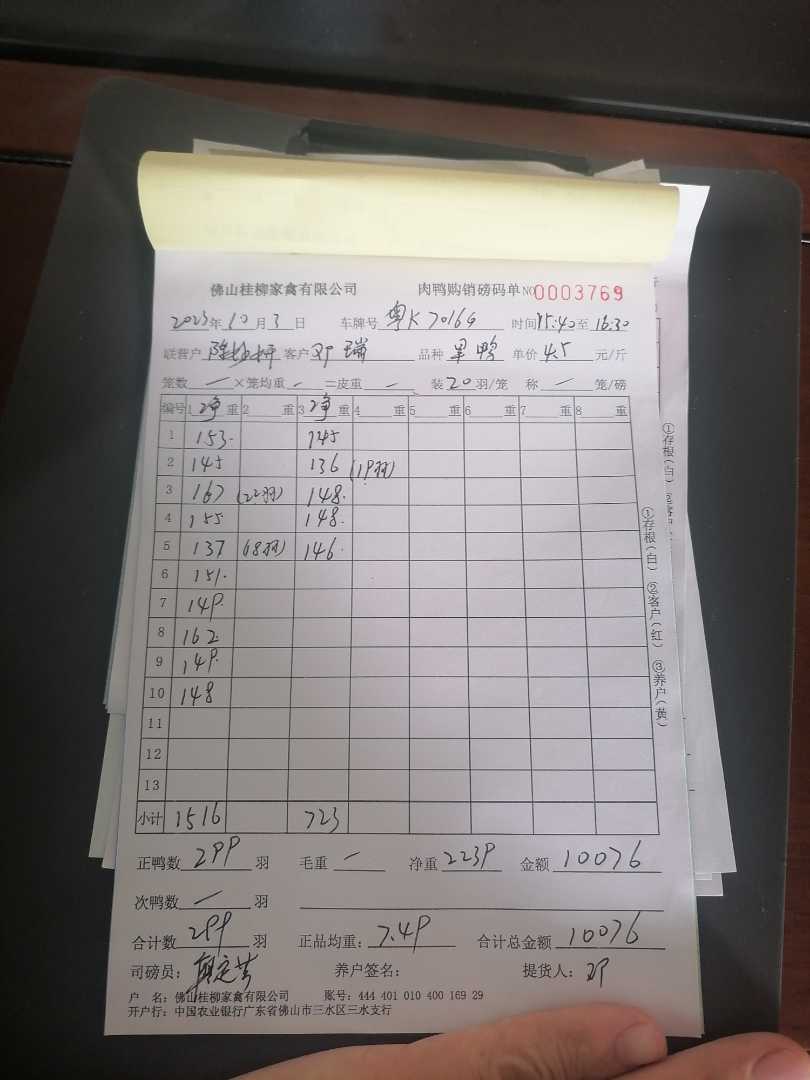 佛山桂柳家禽有限公司 肉鸭购销磅码单 NO 0003769
2023年10月3日 车牌号 粤K70164 时间15:40至16:30
联营户 陈 客户 邓瑞 品种 果鸭 单价 4.5 元/斤
笼数 — ×笼均重 - =皮重 — 装20羽/笼 称 — 笼/磅
编号 1净重 2重 3净重 4重 5重 6重 7重 8重
1 153. 145
2 145 136 (19羽)
3 167 (22羽) 148.
4 155 148.
5 137 (18羽) 146.
6 151.
7 149.
8 162
9 149.
10 148
11
12
13
小计 1516 723
正鸭数 299 羽 毛重 — 净重 2239 金额 10076
次鸭数 — 羽
合计数 299 羽 正品均重: 7.49 合计总金额 10076
司磅员: 养户签名: 提货人: 邓
户 名: 佛山桂柳家禽有限公司 账号: 444 401 010 400 169 29
开户行: 中国农业银行广东省佛山市三水区三水支行
①存根(白) ②客户(红) ③养户(黄)
①存根(白)